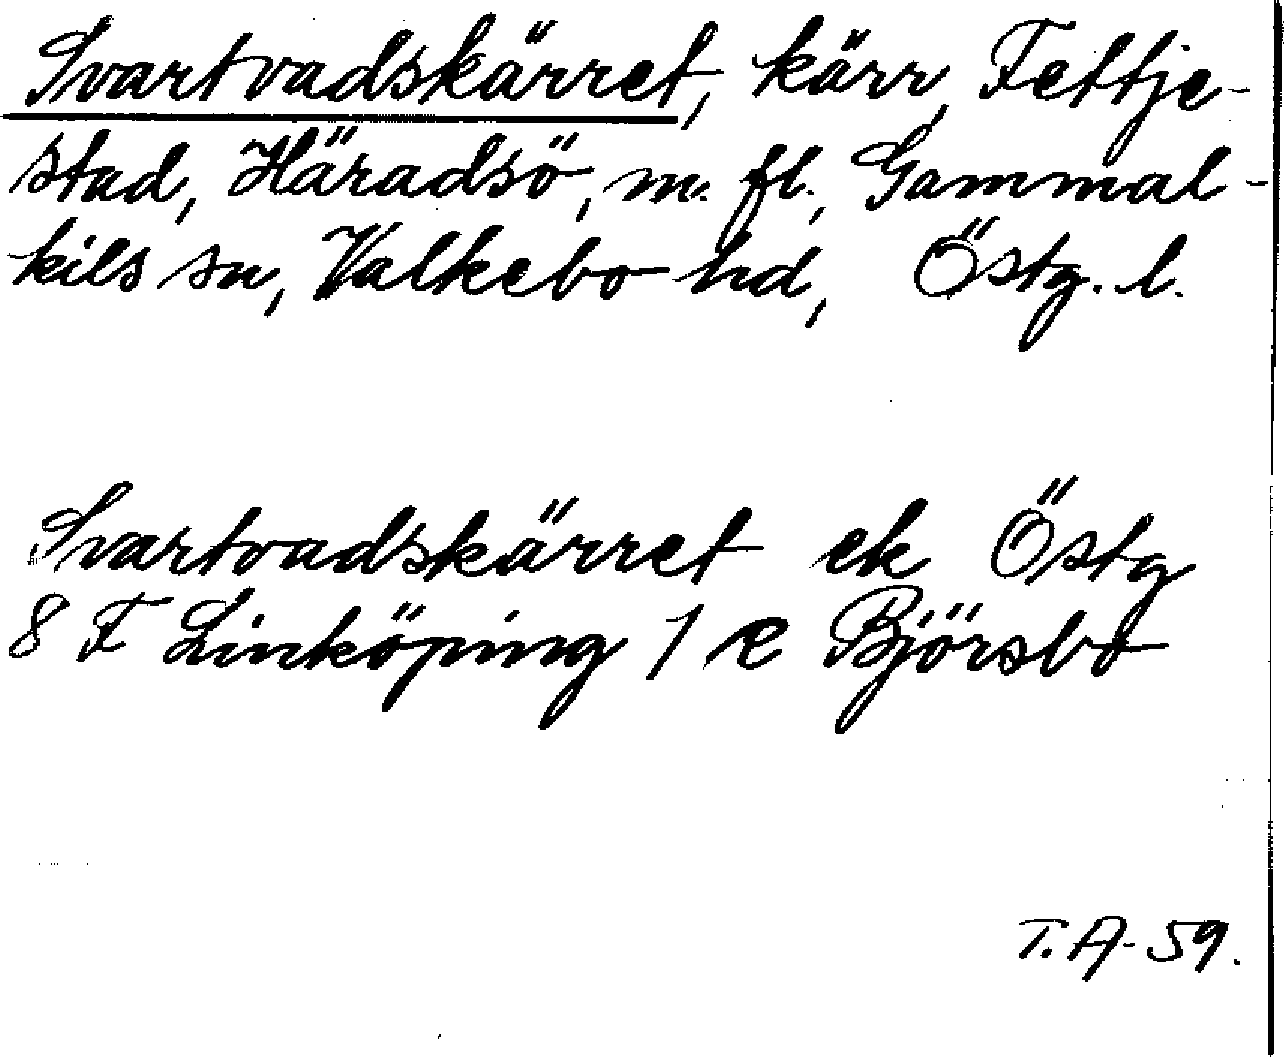 Svartvadskärret, kärr, Fettje-
stad, Häradsö, m. fl., Gammal-
kils sn, Valkebo hd, Östg. l.
Svartvadskärret ek Östg
8 F Linköping 1 e Björsbo
T. A - 59.